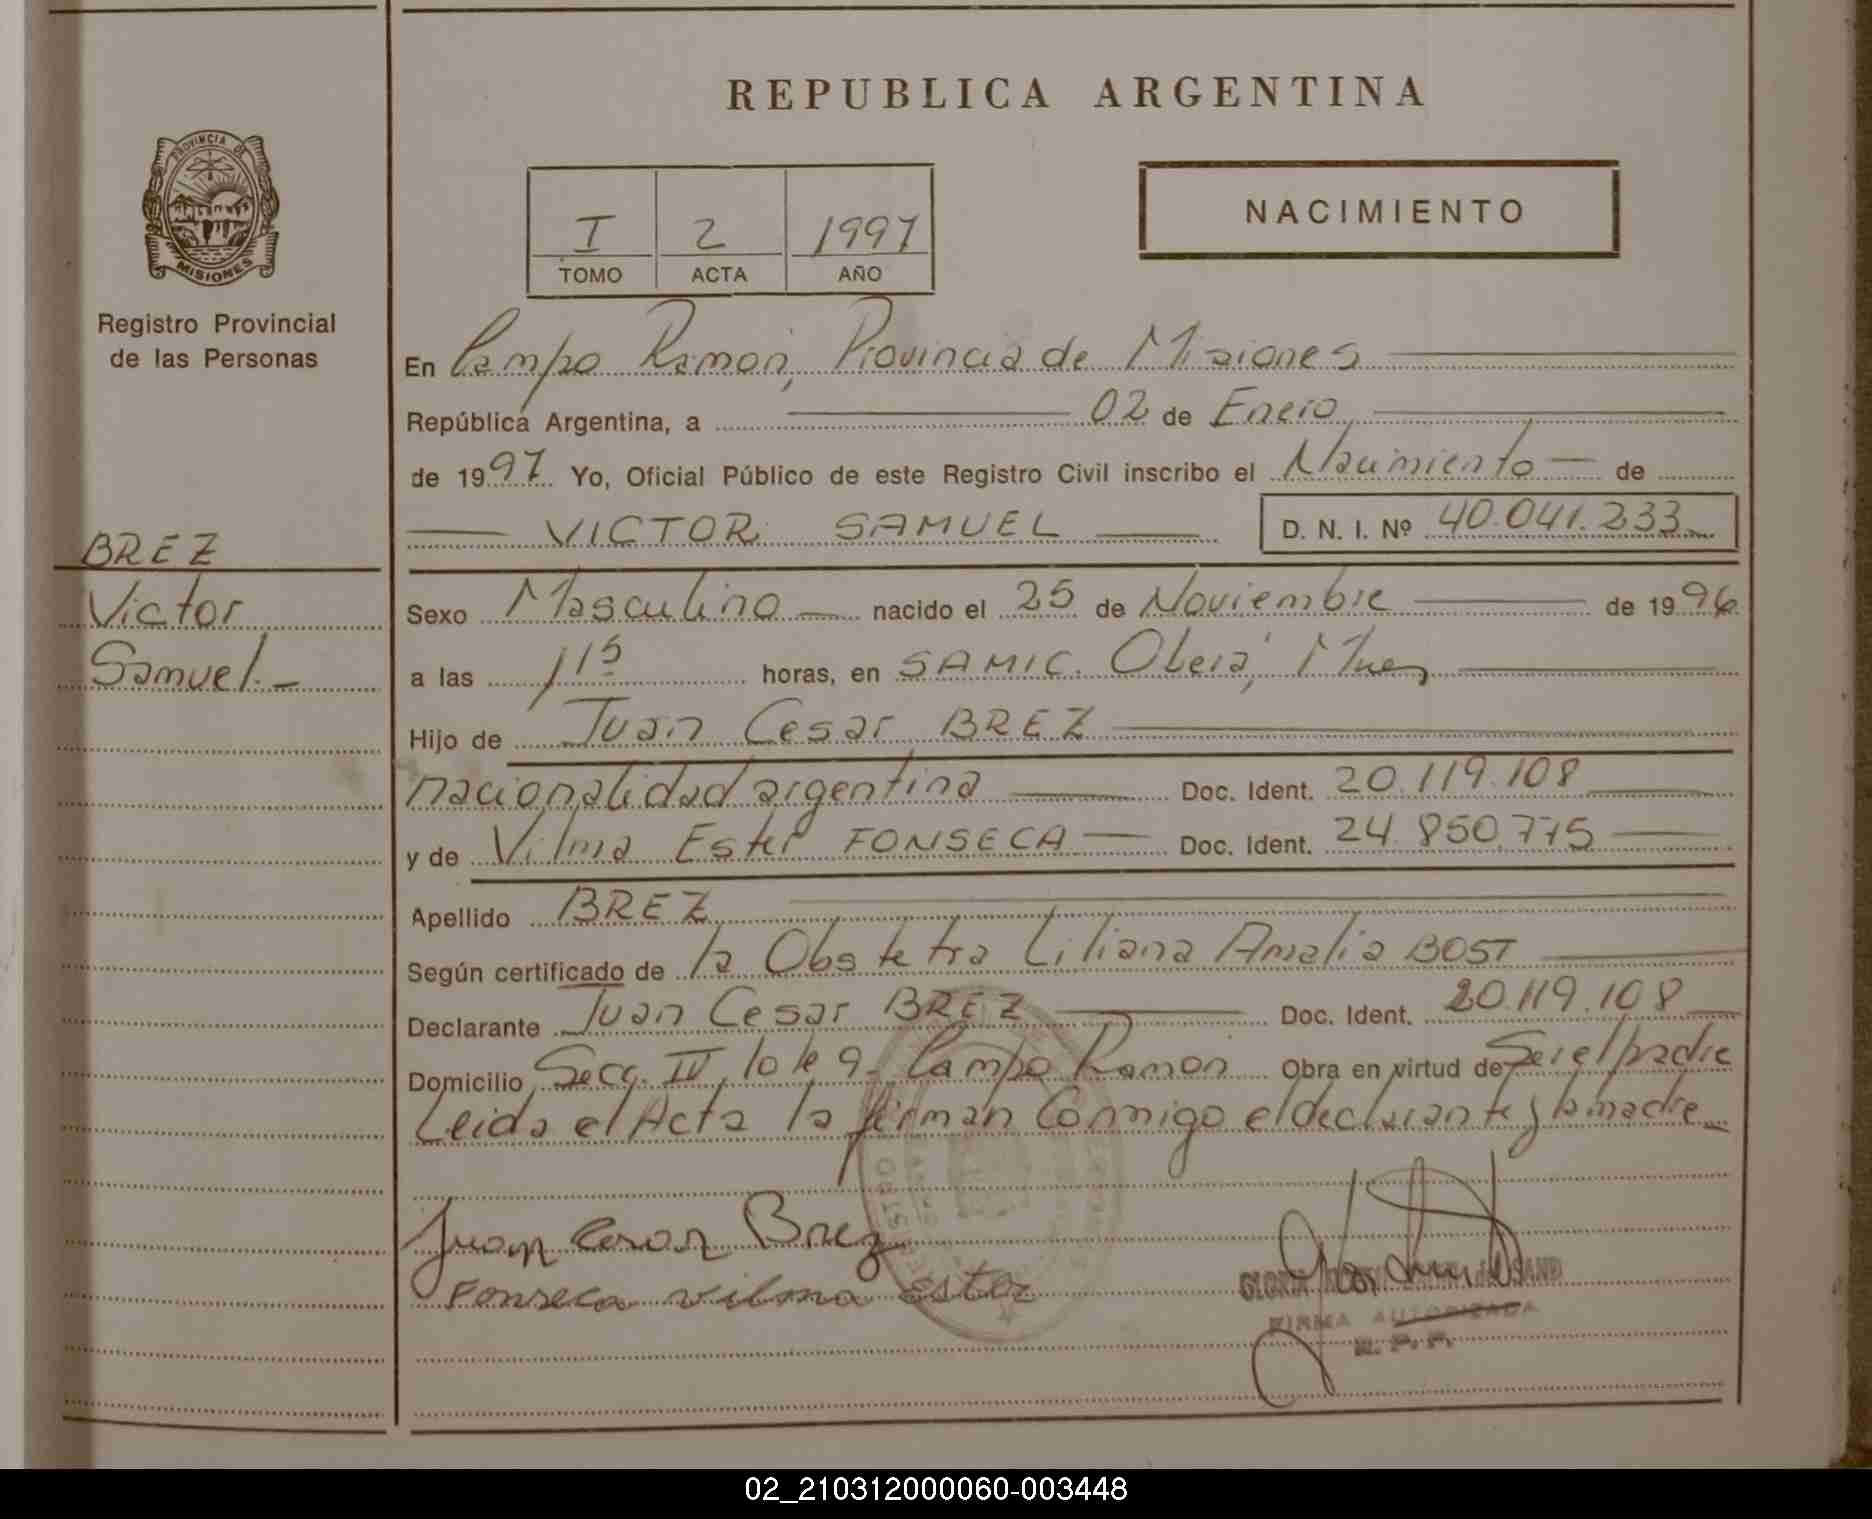 REPUBLICA ARGENTINA
PROVINCIA DE
MISIONES
Registro Provincial
de las Personas
I 2 1997
TOMO ACTA AÑO
NACIMIENTO
En Campo Ramon, Provincia de Misiones
República Argentina, a 02 de Enero
de 1997 Yo, Oficial Público de este Registro Civil inscribo el Nacimiento de
VICTOR SAMUEL D. N. I. Nº 40.041.233
BREZ
Victor
Samuel.-
Sexo Masculino nacido el 25 de Noviembre de 1996
a las 11⁵ horas, en SAMIC. Oberá, Mnes
Hijo de Juan Cesar BREZ
nacionalidad argentina Doc. Ident. 20.119.108
y de Vilma Ester FONSECA Doc. Ident. 24.850.775
Apellido BREZ
Según certificado de la Obstetra Liliana Amalia BOST
Declarante Juan Cesar BREZ Doc. Ident. 20.119.108
Domicilio Secc. IV lote 9- Campo Ramon Obra en virtud de Ser el padre
Leida el Acta la firman Conmigo el declarante y la madre
Juan Cesar Brez
Fonseca vilma ester
GLORIA SAND
FIRMA AUTORIZADA
R. P. P.
02_210312000060-003448